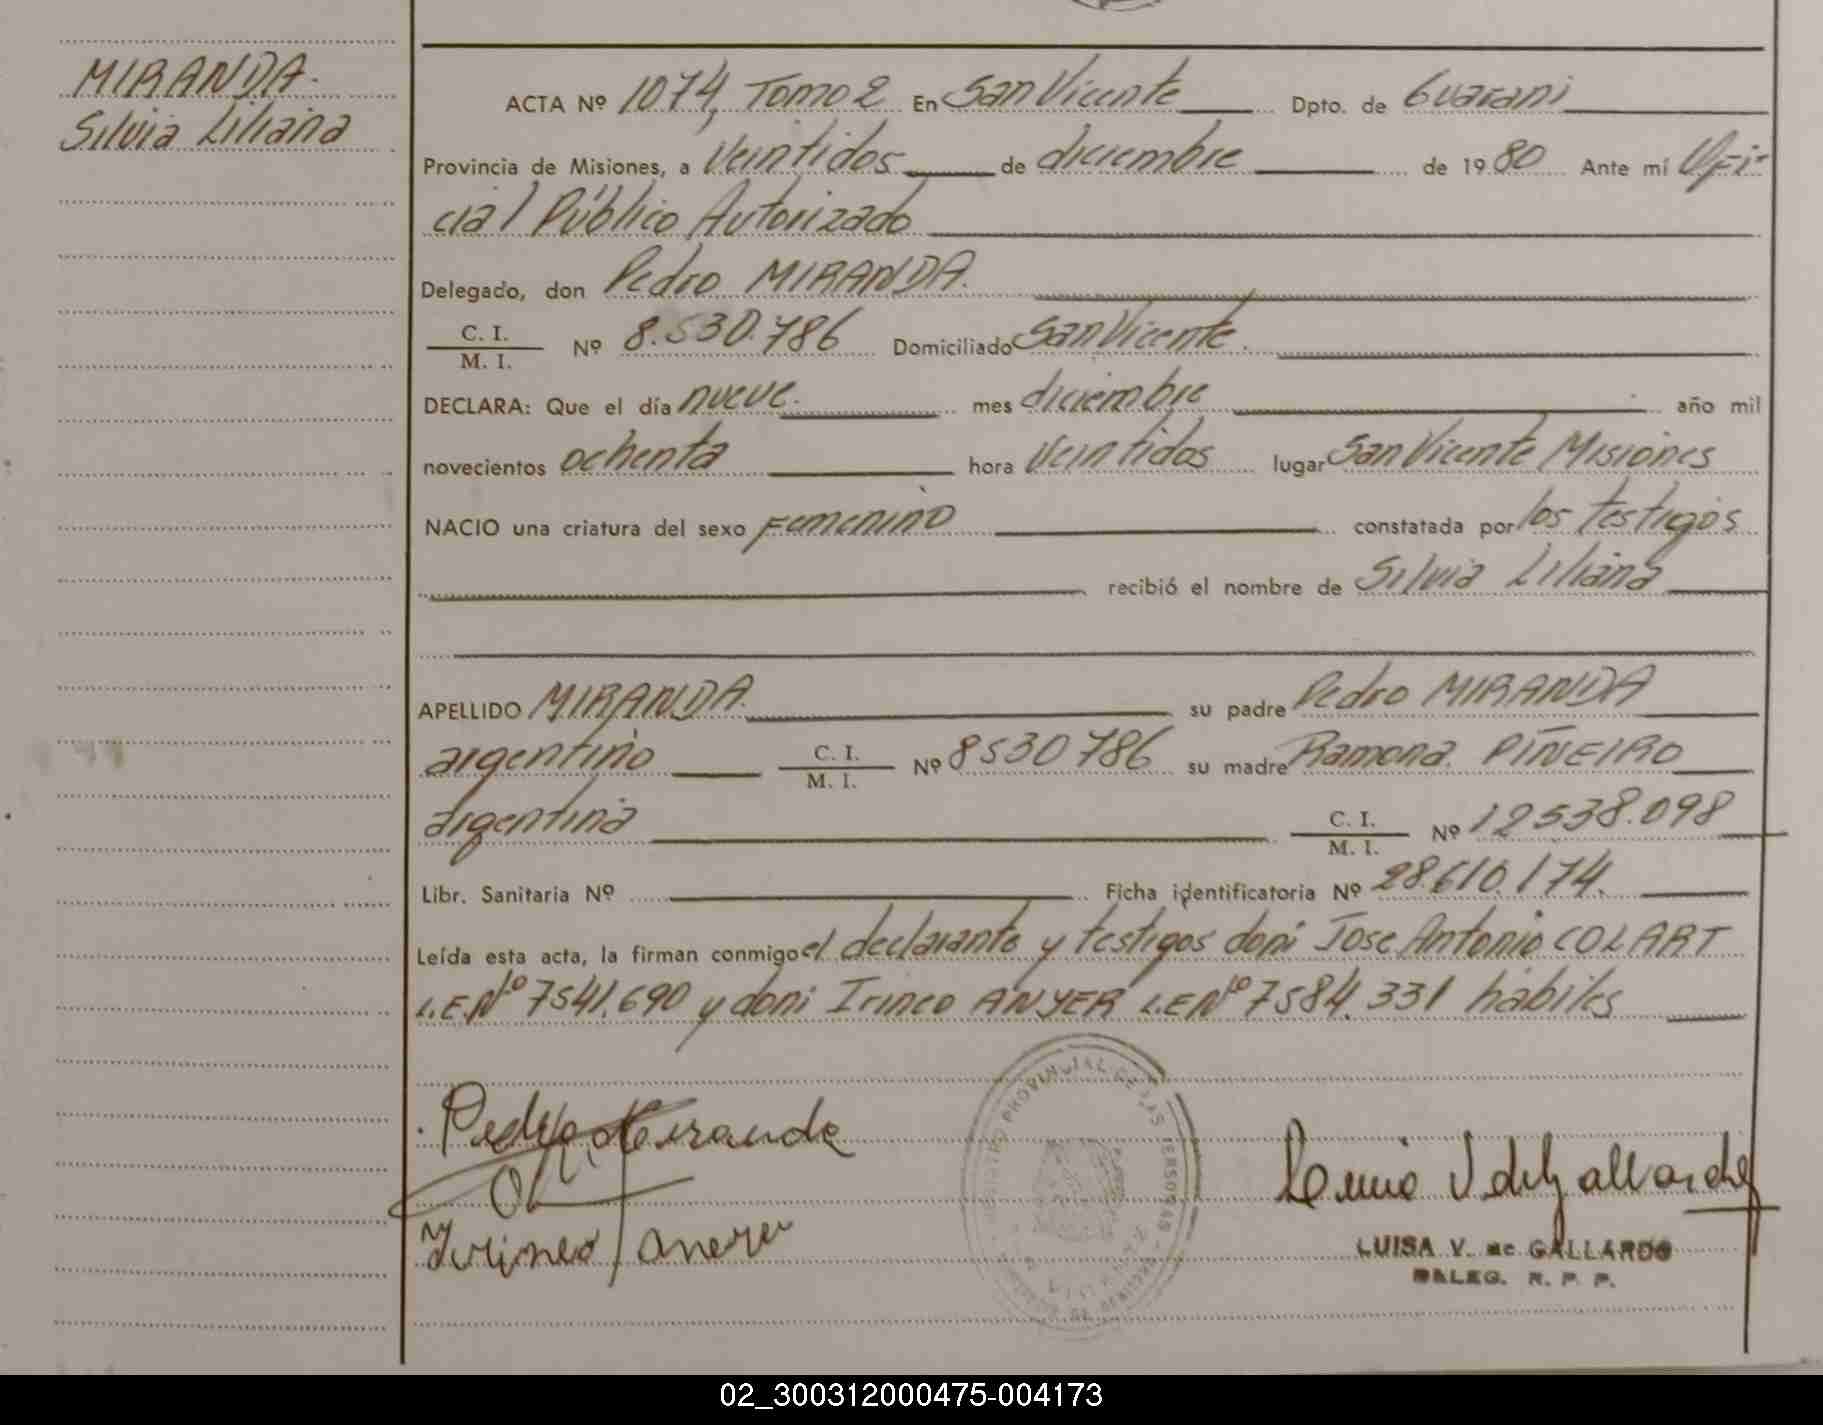 MIRANDA.
Silvia Liliana
ACTA Nº 1074, Tomo 2 En San Vicente Dpto. de Guarani
Provincia de Misiones, a Veintidos de diciembre de 1980 Ante mí Ofi-
cial Público Autorizado
Delegado, don Pedro MIRANDA.
C. I.
M. I. Nº 8.530.786 Domiciliado San Vicente.
DECLARA: Que el día nueve. mes diciembre año mil
novecientos ochenta hora Veintidos lugar San Vicente Misiones
NACIO una criatura del sexo Femenino constatada por los testigos
recibió el nombre de Silvia Liliana
APELLIDO MIRANDA. su padre Pedro MIRANDA
argentino C. I. M. I. Nº 8530786 su madre Ramona PIÑEIRO
argentina C. I. M. I. Nº 12538.098
Libr. Sanitaria Nº Ficha identificatoria Nº 28.610.174.
Leída esta acta, la firman conmigo el declarante y testigos doni Jose Antonio COLART
L.E.Nº 7541.690 y doni Irineo ANYER L.E.Nº 7584.331 hábiles
Pedro Miranda
Irineo Aneyer
LUISA V. de GALLARDO
DELEG. R. P. P.
REGISTRO PROVINCIAL DE LAS PERSONAS
02_300312000475-004173